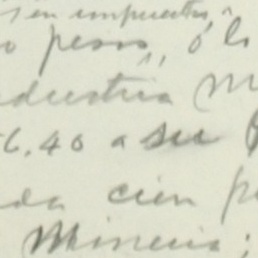 s en impuestos,"
o pesos", ó lo
dustria M
6.40 a su
da cien p
Mineria;